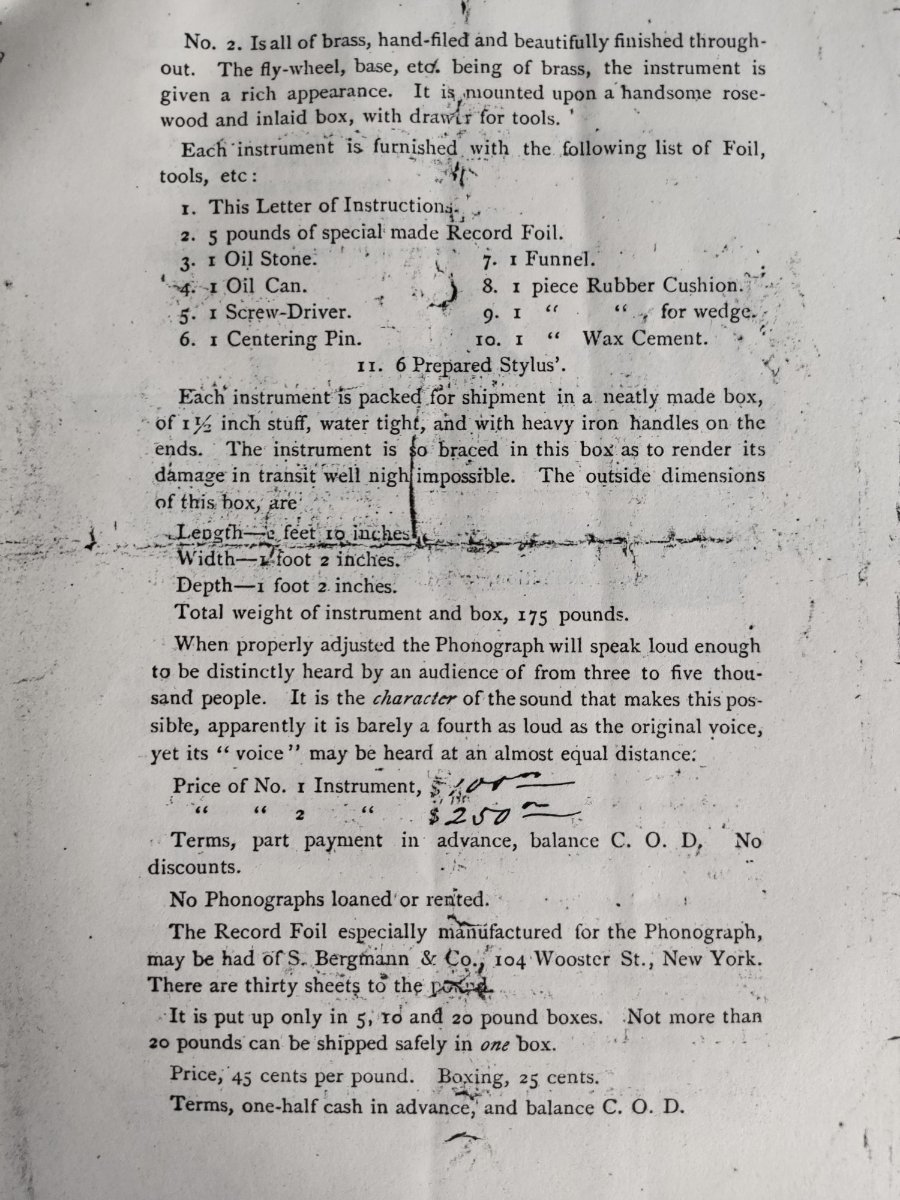 No. 2. Is all of brass, hand-filed and beautifully finished through-
out. The fly-wheel, base, etc. being of brass, the instrument is
given a rich appearance. It is mounted upon a handsome rose-
wood and inlaid box, with drawer for tools.
Each instrument is furnished with the following list of Foil,
tools, etc:
1. This Letter of Instructions.
2. 5 pounds of special made Record Foil.
3. 1 Oil Stone. 7. 1 Funnel.
4. 1 Oil Can. 8. 1 piece Rubber Cushion.
5. 1 Screw-Driver. 9. 1 “ “ for wedge.
6. 1 Centering Pin. 10. 1 “ Wax Cement.
11. 6 Prepared Stylus’.
Each instrument is packed for shipment in a neatly made box,
of 1½ inch stuff, water tight, and with heavy iron handles on the
ends. The instrument is so braced in this box as to render its
damage in transit well nigh impossible. The outside dimensions
of this box, are
Length— feet 10 inches
Width—1 foot 2 inches.
Depth—1 foot 2 inches.
Total weight of instrument and box, 175 pounds.
When properly adjusted the Phonograph will speak loud enough
to be distinctly heard by an audience of from three to five thou-
sand people. It is the character of the sound that makes this pos-
sible, apparently it is barely a fourth as loud as the original voice,
yet its “ voice ” may be heard at an almost equal distance.
Price of No. 1 Instrument, $
“ “ 2 “ $250
Terms, part payment in advance, balance C. O. D. No
discounts.
No Phonographs loaned or rented.
The Record Foil especially manufactured for the Phonograph,
may be had of S. Bergmann & Co., 104 Wooster St., New York.
There are thirty sheets to the pound.
It is put up only in 5, 10 and 20 pound boxes. Not more than
20 pounds can be shipped safely in one box.
Price, 45 cents per pound. Boxing, 25 cents.
Terms, one-half cash in advance, and balance C. O. D.